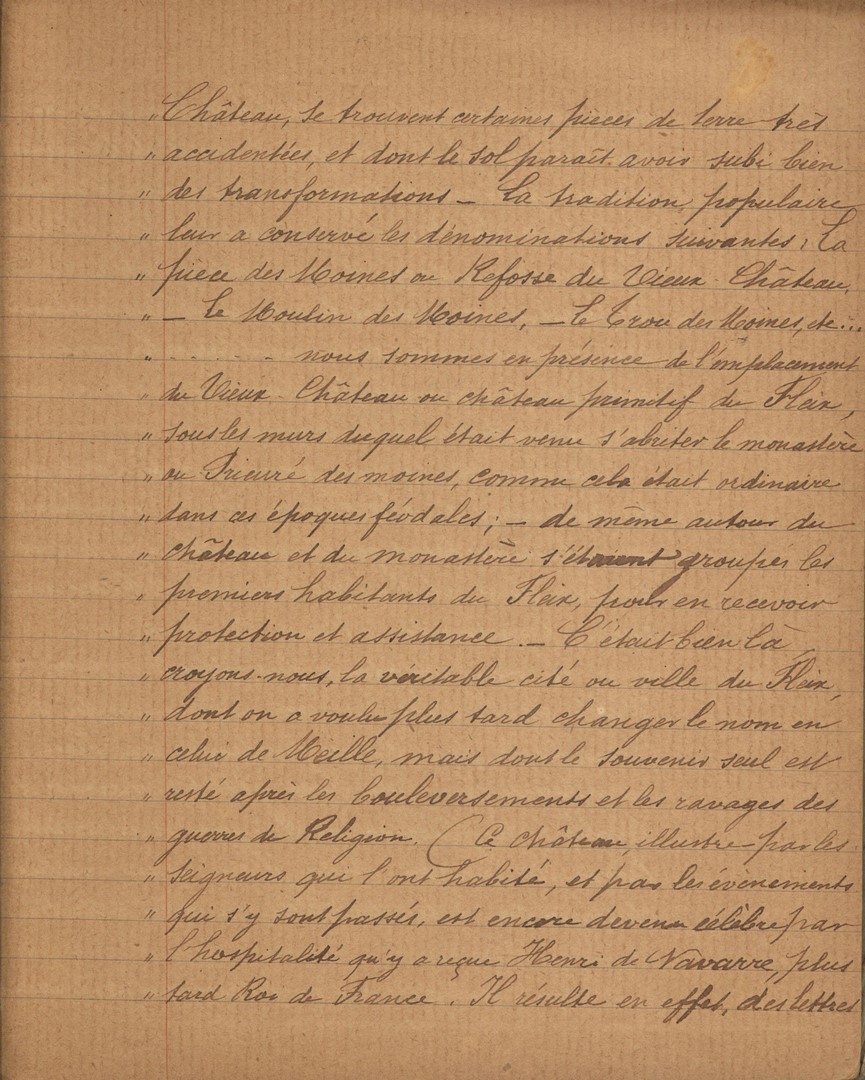 „ Château, se trouvent certaines pièces de terre très
„ accidentées, et dont le sol paraît avoir subi bien
„ des transformations – La tradition populaire
„ leur a conservé les dénominations suivantes : La
„ pièce des Moines ou Refosse du Vieux-Château,
„ – Le Moulin des Moines, – Le Trou des Moines, etc...
„ . . . . . . . nous sommes en présence de l'emplacement
„ du Vieux-Château ou château primitif du Fleix,
„ sous les murs duquel était venu s'abriter le monastère
„ ou Prieuré des moines, comme cela était ordinaire
„ dans ces époques féodales ; – de même autour du
„ château et du monastère s'étaient groupés les
„ premiers habitants du Fleix, pour en recevoir
„ protection et assistance. – C'était bien là,
„ croyons-nous, la véritable cité ou ville du Fleix,
„ dont on a voulu plus tard changer le nom en
„ celui de Meille, mais dont le souvenir seul est
„ resté après les bouleversements et les ravages des
„ guerres de Religion. ( Ce château, illustre par les
„ seigneurs qui l'ont habité, et par les évènements
„ qui s'y sont passés, est encore devenu célèbre par
„ l'hospitalité qu'y a reçue Henri de Navarre, plus
„ tard Roi de France. Il résulte en effet, des lettres